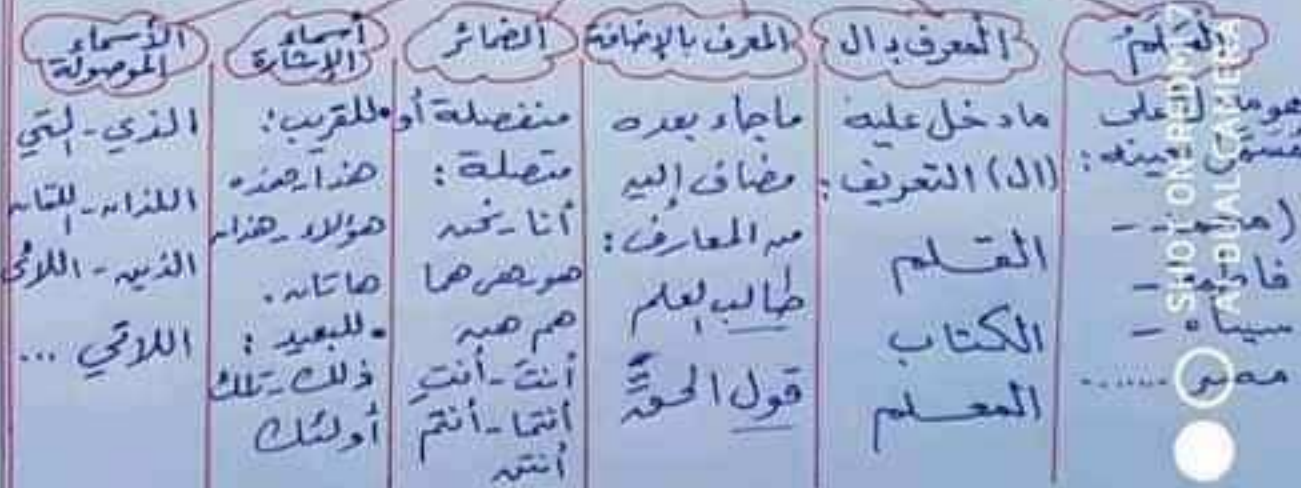 العَلَمُ
هو ما دل على
مُسَمًّى بعينه:
فاطمة -
سيناء -
مصر ......
المعرف بـ ال
ما دخل عليه
(ال) التعريف:
القلم
الكتاب
المعلم
المعرف بالإضافة
ماجاء بعده
مضاف إليه
من المعارف:
طالب العلم
قول الحقِّ
الضمائر
منفصلة أو
متصلة:
أنا - نحن
هو - هي هما
هم هن
أنتَ - أنتِ
أنتما - أنتم
أنتن
أسماء
الإشارة
• للقريب:
هذا - هذه
هؤلاء - هذان
هاتان.
• للبعيد:
ذلك - تلك
أولئك
الأسماء
الموصولة
الذي - التي
اللذان - اللتان
الذين - اللائي
اللاتي ...
SHOT ON REDMI 7
AI DUAL CAMERA